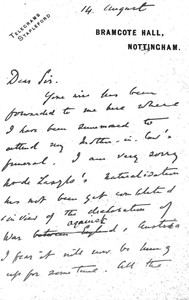 14. August
TELEGRAMS
STAPLEFORD.
BRAMCOTE HALL,
NOTTINGHAM.
Dear Sir.
Yours has been
forwarded to me here where
I have been summoned to
attend my Mother-in-law's
funeral. I am very sorry
Mr de Laszlo's naturalization
has not been yet completed
in view of the declaration of
War between England against Austria
I fear it will now be hung
up for some time. All the